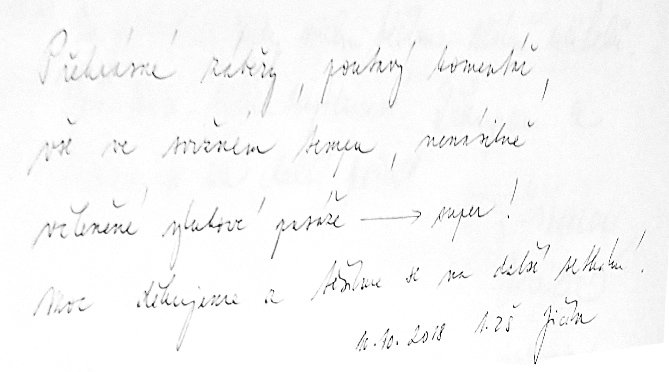 Překrásné záběry, poutavý komentář,
vše ve svižném tempu, nenásilně
včleněné zvukové pasáže → super!
Moc děkujeme a těšíme se na další setkání!
10.10.2018 1. ZŠ Jičín